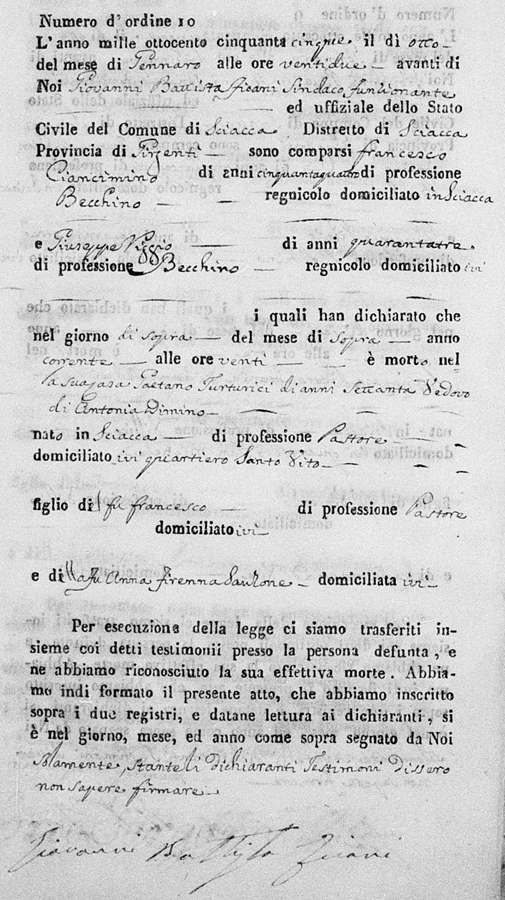 Numero d'ordine 10
L'anno mille ottocento cinquanta cinque il dì otto
del mese di Gennaro alle ore ventidue avanti di
Noi Giovanni Battista Sindaco funzionante
ed uffiziale dello Stato
Civile del Comune di Sciacca Distretto di Sciacca
Provincia di Girgenti sono comparsi Francesco
Ciancimino di anni cinquantaquattro di professione
Becchino regnicolo domiciliato in Sciacca
e Giuseppe di anni quarantatre
di professione Becchino regnicolo domiciliato ivi
i quali han dichiarato che
nel giorno di sopra del mese di Sopra anno
corrente alle ore venti è morto nel
la sua casa Gaetano Turturici di anni Settanta Vedovo
di Antonia Dimino
nato in Sciacca di professione Pastore
domiciliato ivi quartiero Santo Vito
figlio di fu Francesco di professione Pastore
domiciliato ivi
e di la fu Anna domiciliata ivi
Per esecuzione della legge ci siamo trasferiti in-
sieme coi detti testimonii presso la persona defunta, e
ne abbiamo riconosciuto la sua effettiva morte. Abbia-
mo indi formato il presente atto, che abbiamo inscritto
sopra i due registri, e datane lettura ai dichiaranti, si
è nel giorno, mese, ed anno come sopra segnato da Noi
Solamente, stante li dichiaranti Testimoni dissero
non sapere firmare
Giovanni Battista